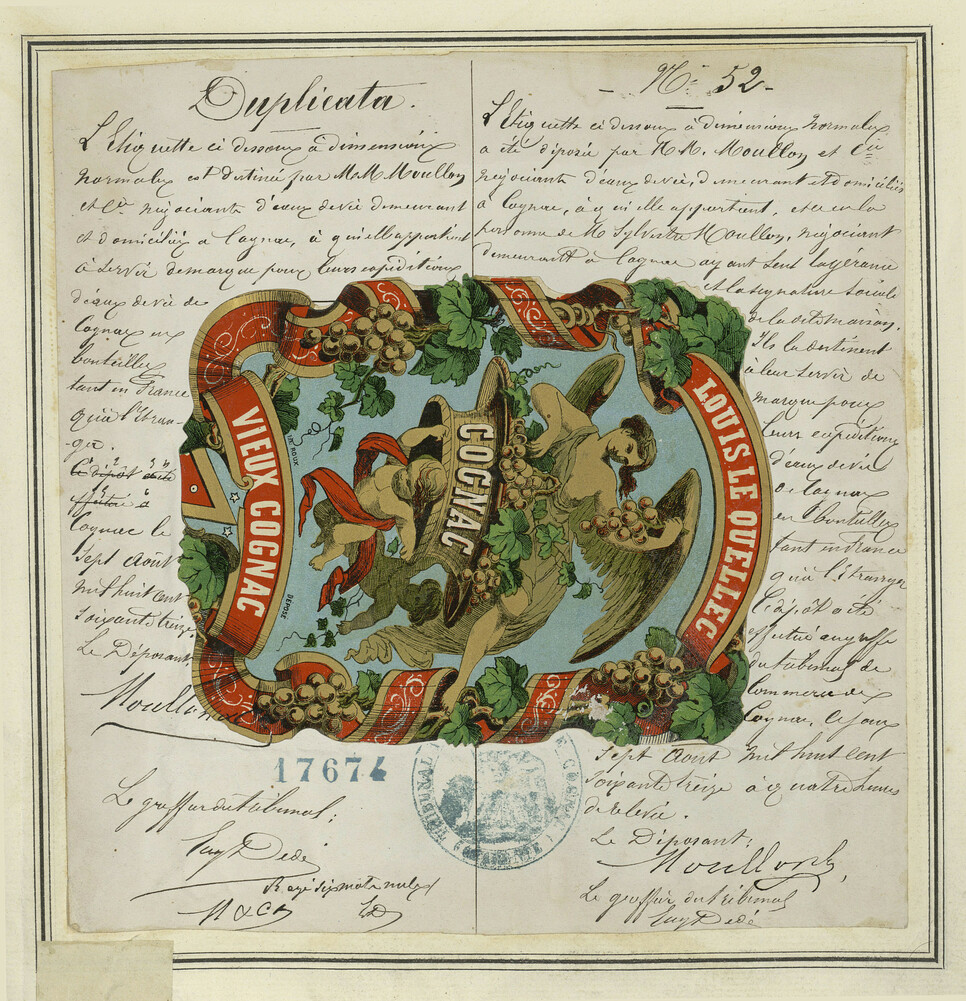 Duplicata.
L'Etiquette ci dessous à dimensions
normales est destinée par M.M. Moullon
et Cie négociants d'eaux de vie demeurant
et domiciliés a Cognac, à qui elle appartient
à servir de marque pour leurs expéditions
d'eaux de vie de
Cognac en
bouteilles
tant en France
qu'à l'Etran-
-ger.
Le dépôt a été
effectué à
Cognac le
Sept Août
mil huit cent
soixante treize.
Le Déposant
Moullon
17674
Le greffier du tribunal;
Rayé six mots nuls
M & Cie
N° 52-
L'Etiquette ci dessous à dimensions normales
a été déposée par M.M. Moullon et Cie
négociants d'eaux de vie, demeurant et domiciliés
à Cognac, à qui elle appartient, et en la
personne de M. Sylvestre Moullon, négociant
demeurant à Cognac ayant seul la gérance
et la signature sociale
de la dite maison.
Ils la destinent
à leur servir de
marque pour
leurs expéditions
d'eaux de vie
de Cognac
en bouteilles
tant en France
qu'à l'Etranger
Le dépôt a été
effectué au greffe
du tribunal de
Commerce de
Cognac, ce jour
Sept Août mil huit cent
soixante treize à quatre heures
de relevée.
Le Déposant;
Moullon
Le greffier du tribunal
LOUIS LE QUELLEC
COGNAC
VIEUX COGNAC
IM. ROUX
DÉPOSÉ